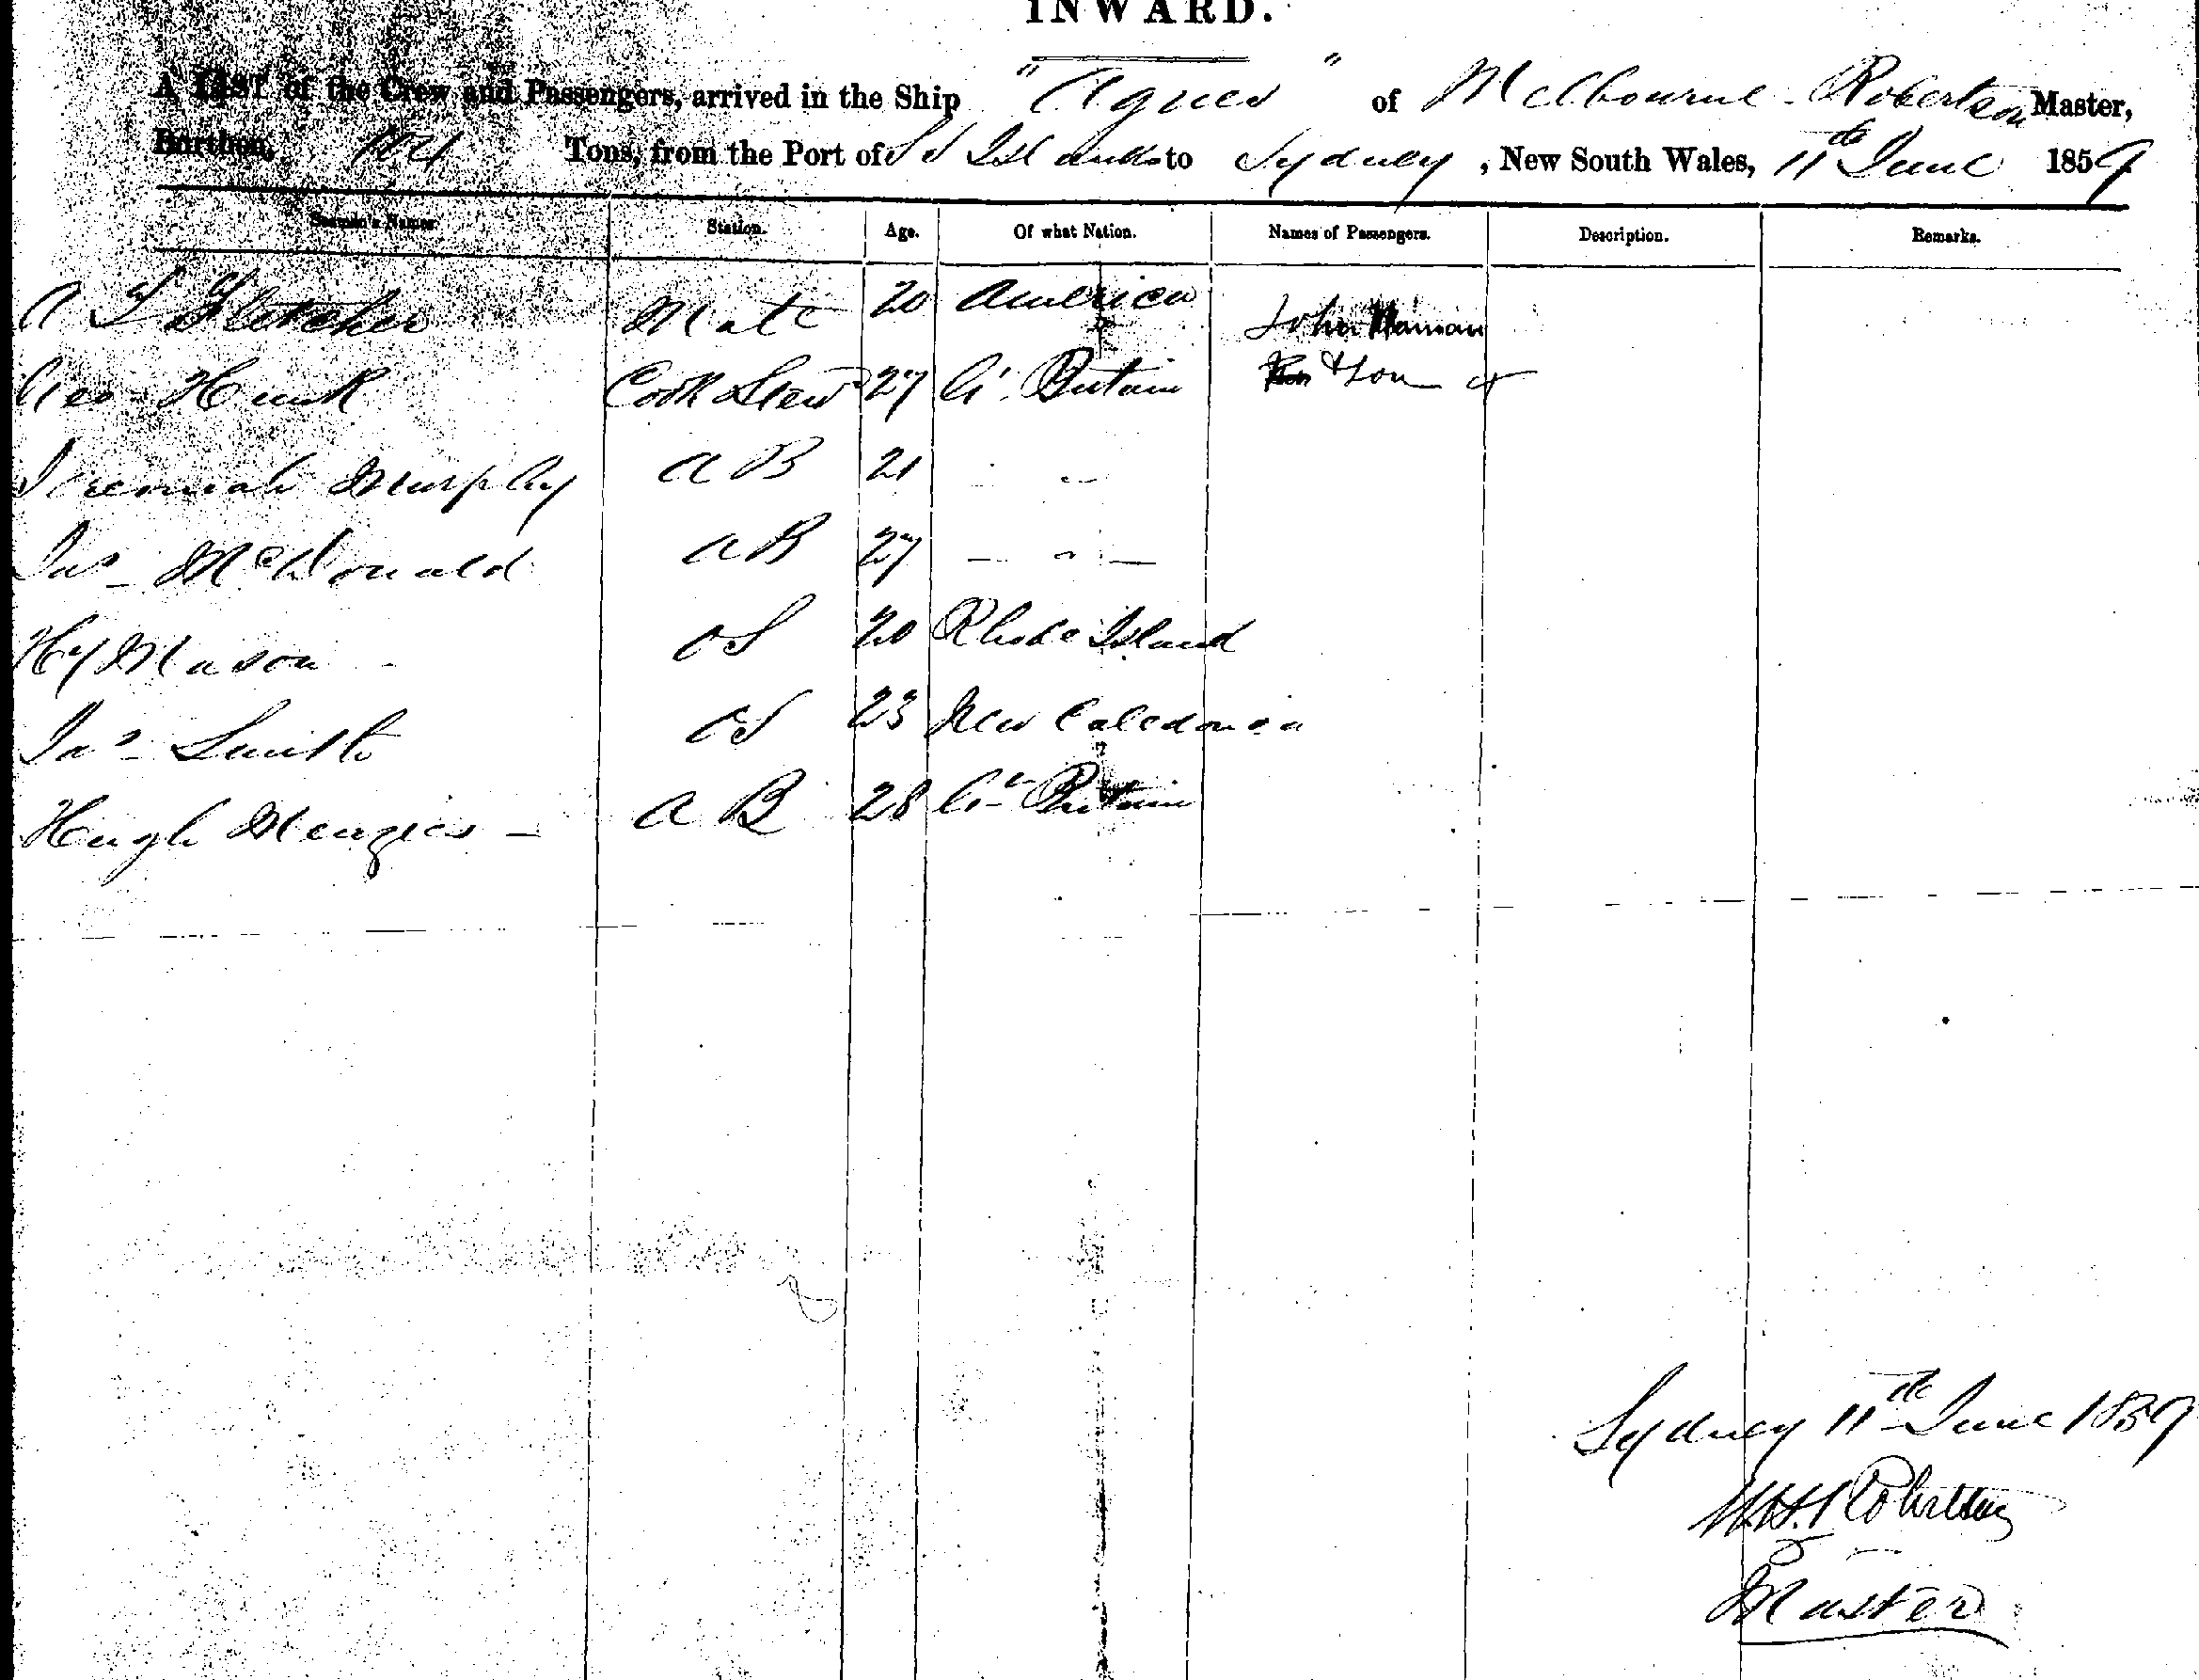 INWARD.
A LIST of the Crew and Passengers, arrived in the Ship "Agnes" of Melbourne - Robertson Master,
Burthen, Tons, from the Port of S S Islands to Sydney, New South Wales, 11th June 1859
Seamen's Names. Station. Age. Of what Nation. Names of Passengers. Description. Remarks.
A Fletcher Mate 20 America John
Geo Hunk Cook Stewd 27 Gt Britain & Son
Jeremiah Murphy A B 21 " "
Jas McDonald A B 27 — " —
Hy Mason O S 20 Rhode Island
Jas Smith O S 23 New Caledonia
Hugh Menzies — A B 28 Gt Britain
Sydney 11th June 1859
W.H. Robertson
Master